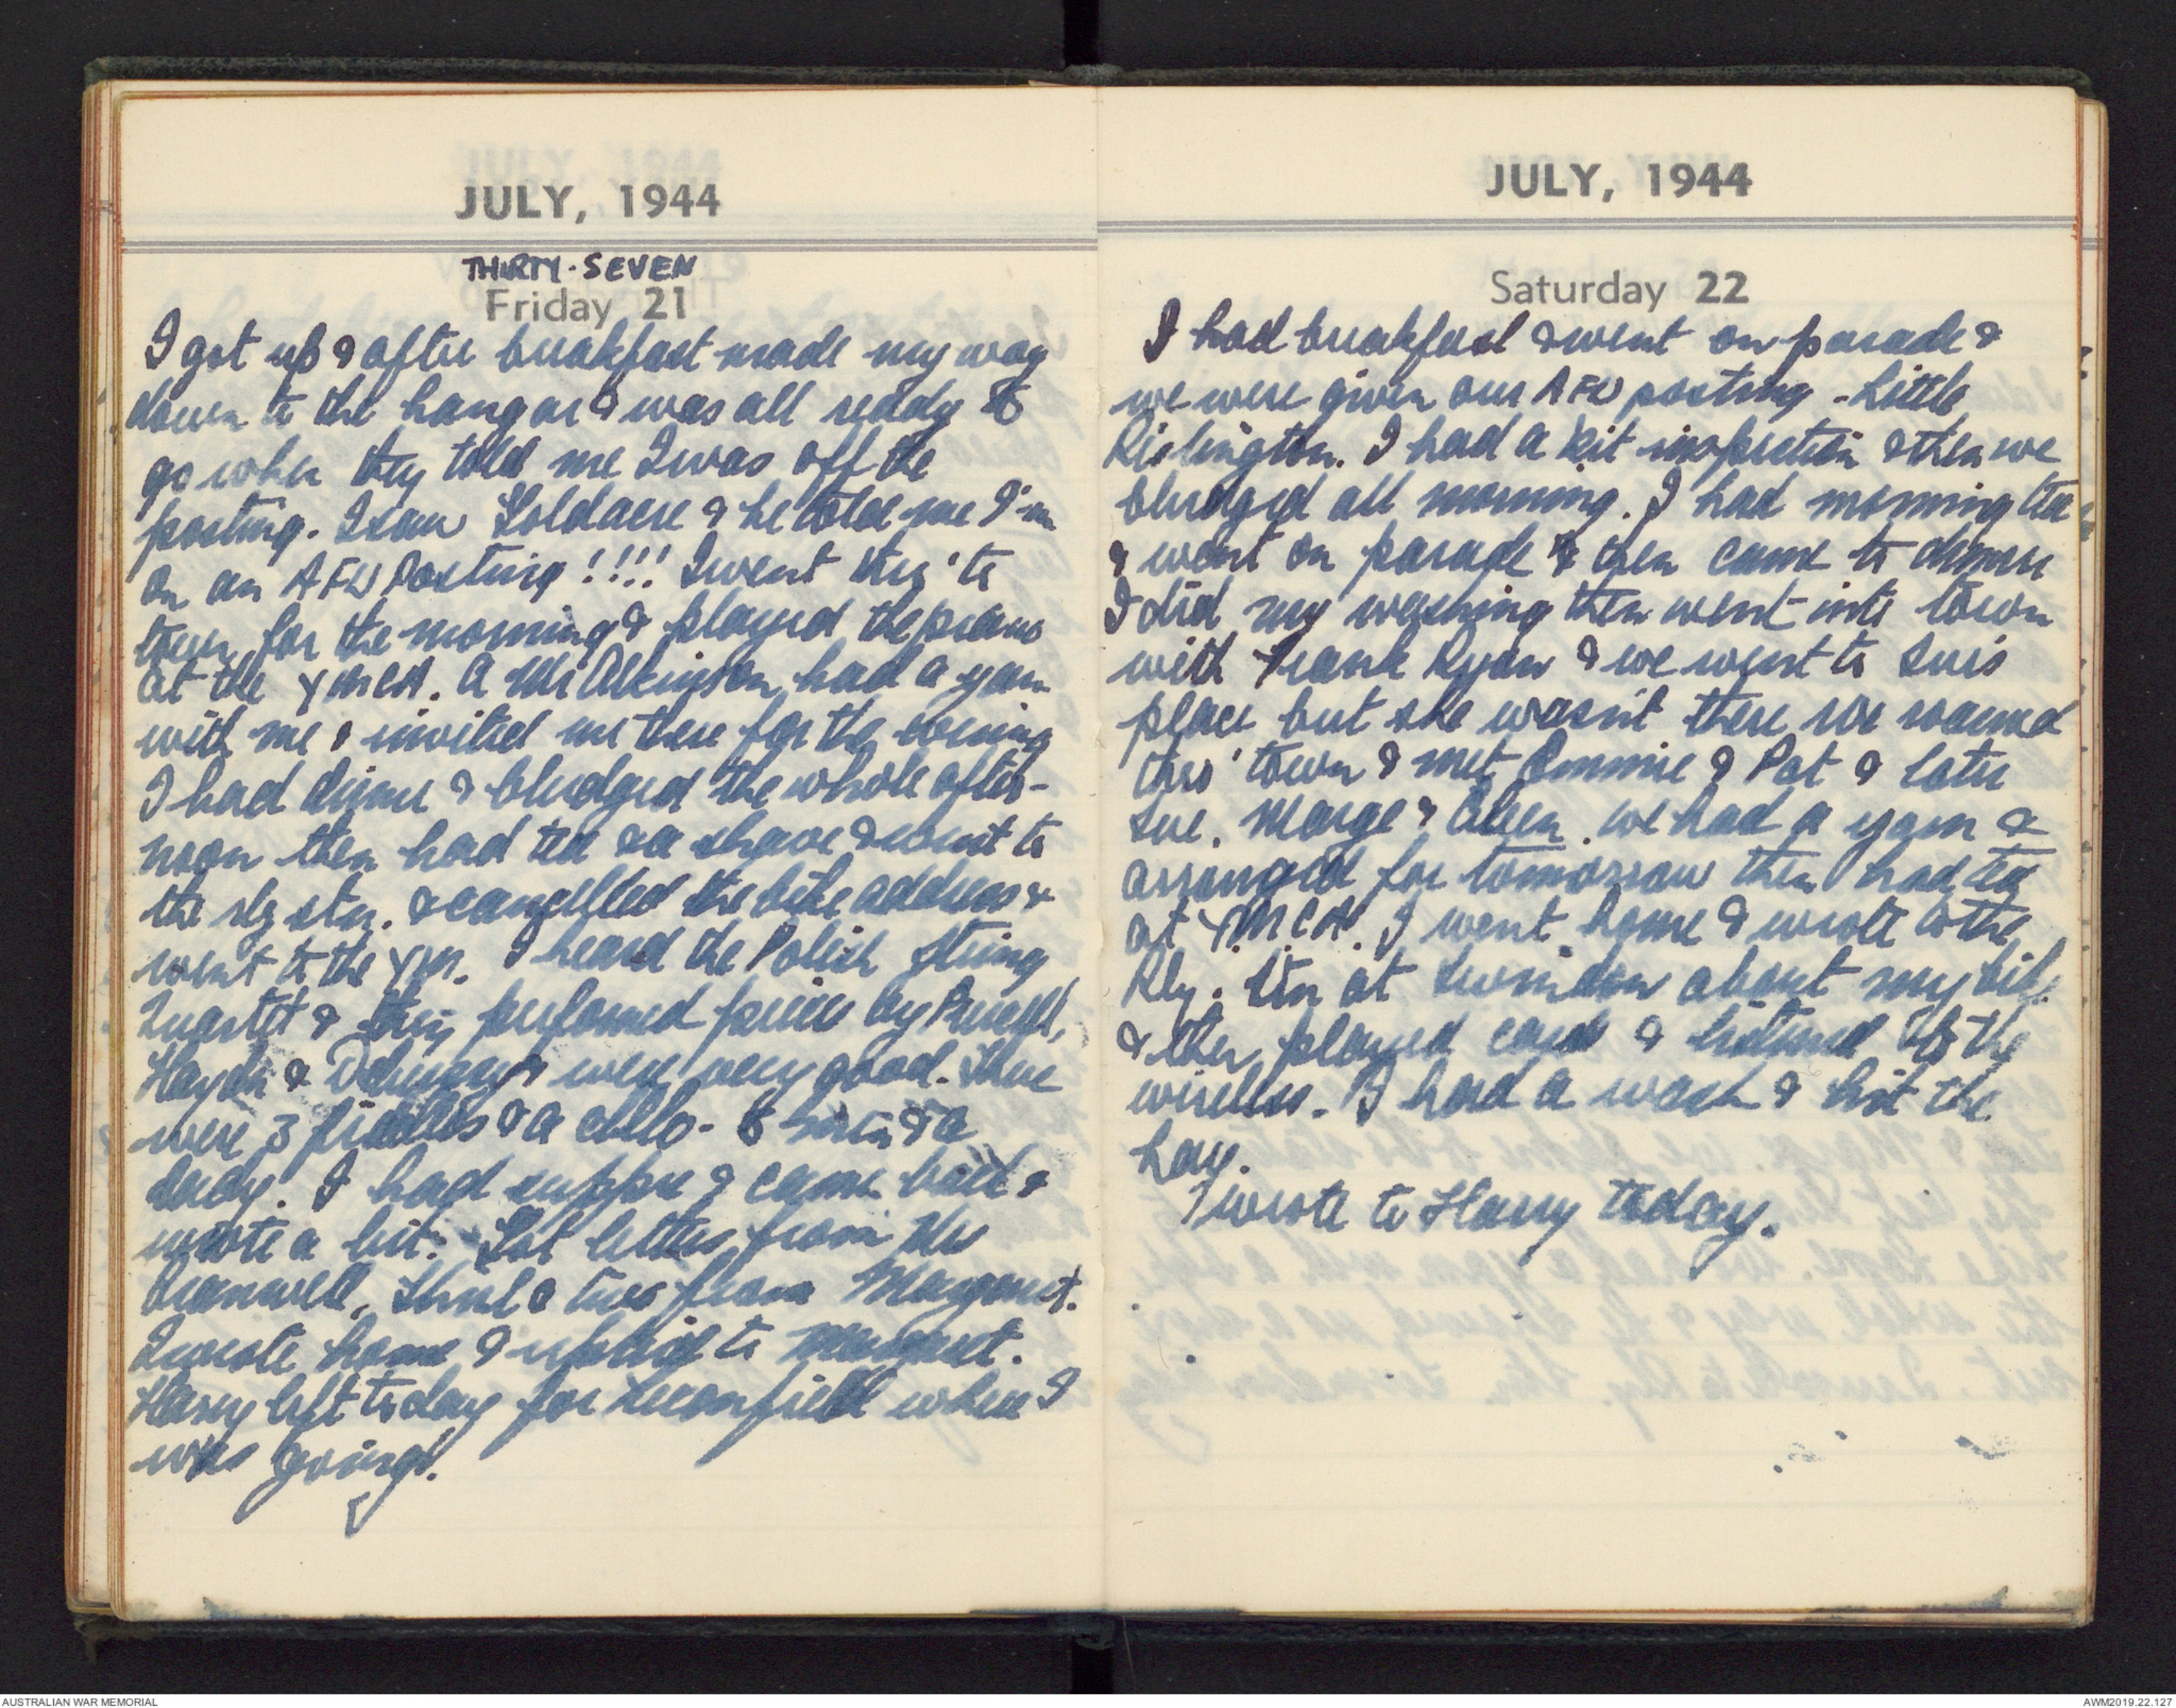 JULY, 1944
THIRTY-SEVEN
Friday 21
I got up & after breakfast made my way
down to the hangar & was all ready to
go when they told me I was off the
posting. I saw & he told me I'm
on an AFU Posting!!!! I went thro' to
town for the morning & played the piano
at the YMCA. A Mr Atkinson had a yarn
with me & invited me there for the evening
I had dinner & bludged the whole after-
noon then had tea & a shave & went to
the rly stn. & cancelled the bike address &
went to the YM. I heard the Polish String
Quartet & they performed pieces by Purcell,
Haydn & Debussy & were very good. There
were 3 fiddles & a cello - 3 men & a
lady. I had supper & came back &
wrote a bit. Got letters from Mrs
& two from Margaret.
I wrote home & replied to Margaret.
Harry left today for Leconfield where I
was going!
JULY, 1944
Saturday 22
I had breakfast & went on parade &
we were given our AFU posting - Little
Rissington. I had a kit inspection & then we
bludged all morning. I had morning tea
& went on parade & then came to dinner
I did my washing then went into town
with Frank Ryan & we went to Sue's
place but she wasn't there we roamed
thro' town & met & Pat & later
Sue, Marge & we had a yarn &
arranged for tomorrow then had tea
at Y.M.C.A. I went home & wrote to the
Rly. Stn at Swindon about my bike
& then played cards & listened to the
wireless. I had a wash & hit the
hay.
I wrote to Harry today.
AUSTRALIAN WAR MEMORIAL
AWM2019.22.127